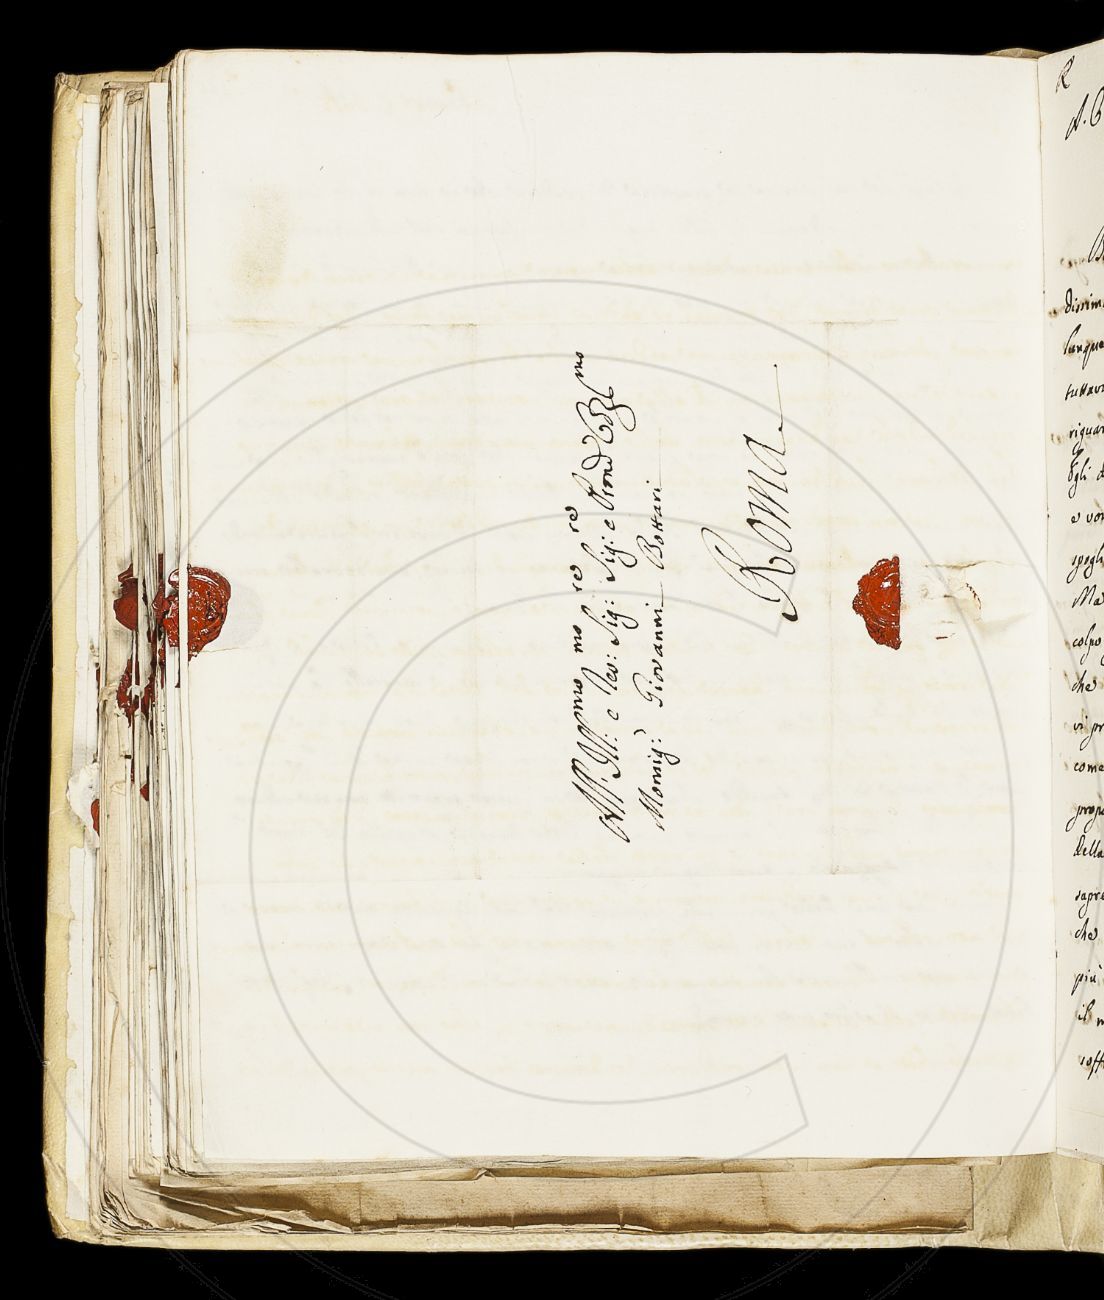 All' Ill:mo e Rev:mo Sig:re Sig:re e Prōne Colmo
Monsig:r Giovanni Bottari
Roma
dissim
tuttavi
riguar
Egli d
e vor
spogli
Ma
colpo
che
vi pr
come
prop
della
sapre
che
più
il m